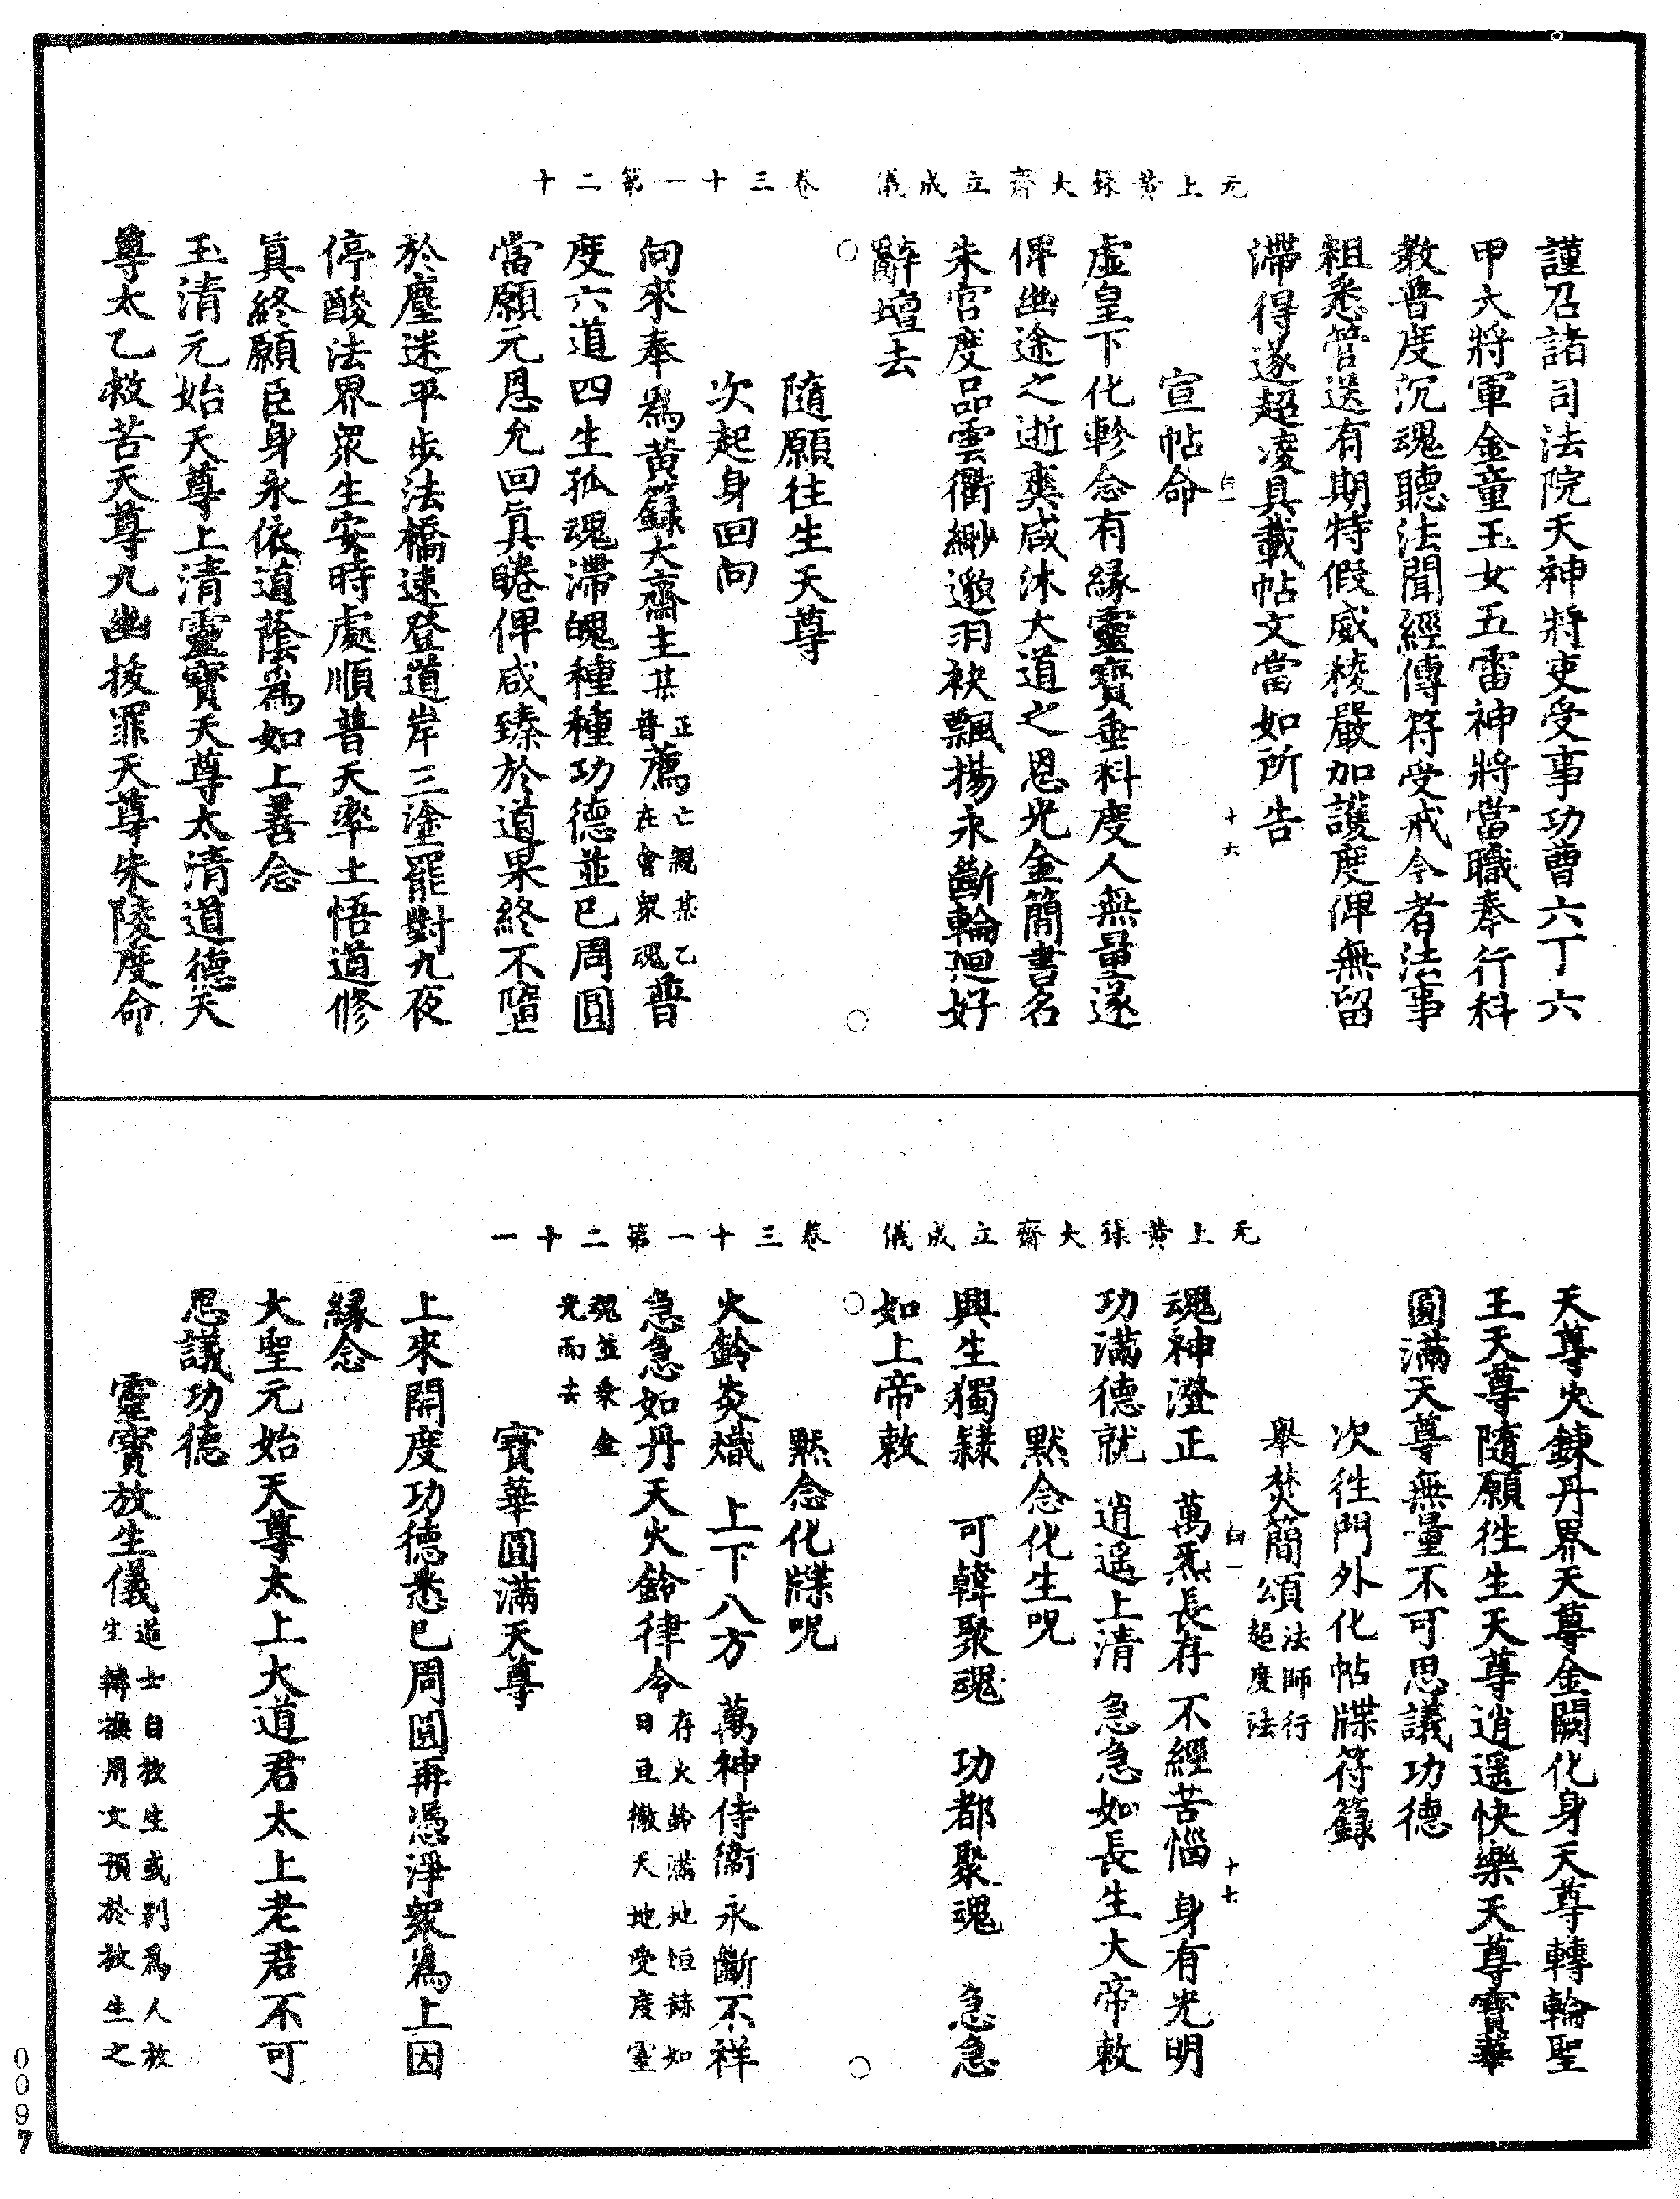 无上黃籙大齋立成儀　卷三十一第二十
謹召諸司法院天神將吏受事功曹六丁六
甲大將軍金童玉女五雷神將當職奉行科
教普度沉魂聽法聞經傳符受戒今者法事
粗悉管送有期特假威稜嚴加護度俾無留
滯得遂超凌具載帖文當如所告
白一　十六
宣帖命
虛皇下化軫念有緣靈寶垂科度人無量遂
俾幽途之逝爽咸沐大道之恩光金簡書名
朱宮度品雲衢緲邈羽袂飄揚永斷輪迴好
辭壇去
隨願往生天尊
次起身回向
向來奉為黃籙大齋主某正普薦亡親某乙在會眾魂普
度六道四生孤魂滯魄種種功德並已周圓
當願元恩允回眞睠俾咸臻於道果終不墮
於塵迷平步法橋速登道岸三塗罷對九夜
停酸法界眾生安時處順普天率土悟道修
眞終願臣身永依道蔭為如上善念
玉清元始天尊上清靈寶天尊太清道德天
尊太乙救苦天尊九幽拔罪天尊朱陵度命
无上黃籙大齋立成儀　卷三十一第二十一
天尊火鍊丹界天尊金闕化身天尊轉輪聖
王天尊隨願徃生天尊逍遥快樂天尊寶華
圓滿天尊無量不可思議功德
次徃門外化帖牒符籙
舉焚簡頌法師行超度法
白一　十七
魂神澄正　萬炁長存　不經苦惱　身有光明
功滿德就　逍遥上清　急急如長生大帝敕
默念化生呪
興生獨隸　可韓聚魂　功都聚魂　急急
如上帝敕
默念化牒呪
火鈴炎熾　上下八方　萬神侍衞　永斷不祥
急急如丹天火鈴律令存火鈴滿地烜赫如日亘徹天地受度靈
魂並乘金光而去
寶華圓滿天尊
上來開度功德悉已周圓再憑淨眾為上因
緣念
大聖元始天尊太上大道君太上老君不可
思議功德
靈寶放生儀道士自放生或別為人放生轉換用文預於放生之
0097